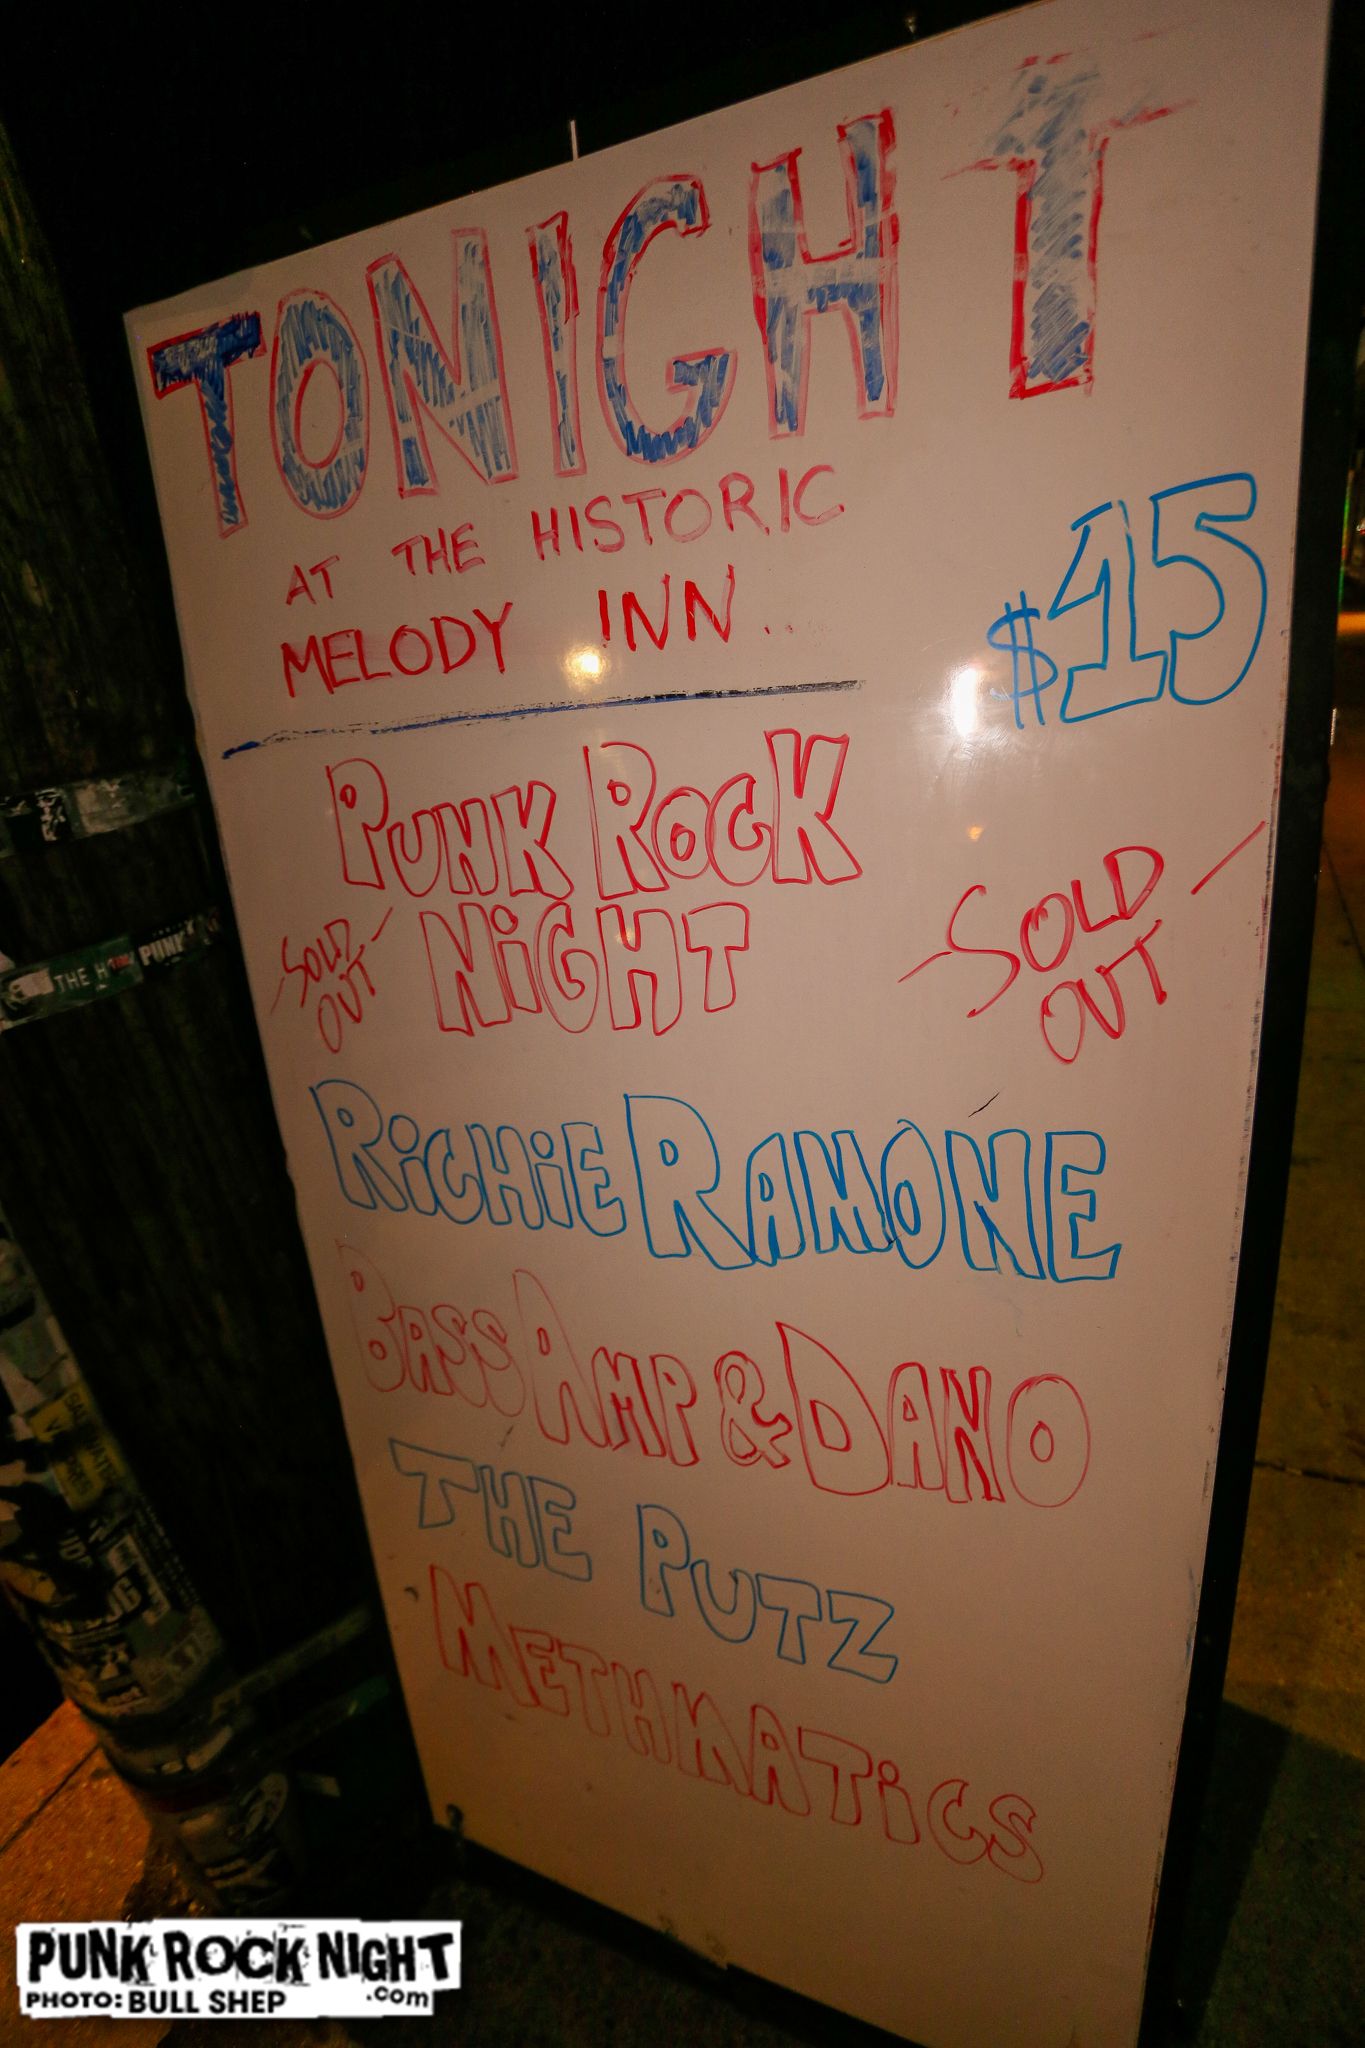 TONIGHT
AT THE HISTORIC
MELODY INN..
$15
PUNK ROCK
NIGHT
SOLD
OUT
SOLD
OUT
RICHIE RAMONE
BASS AMP & DANO
THE PUTZ
METHMATICS
THE
PUNK
PUNK ROCK NIGHT
.com
PHOTO: BULL SHEP